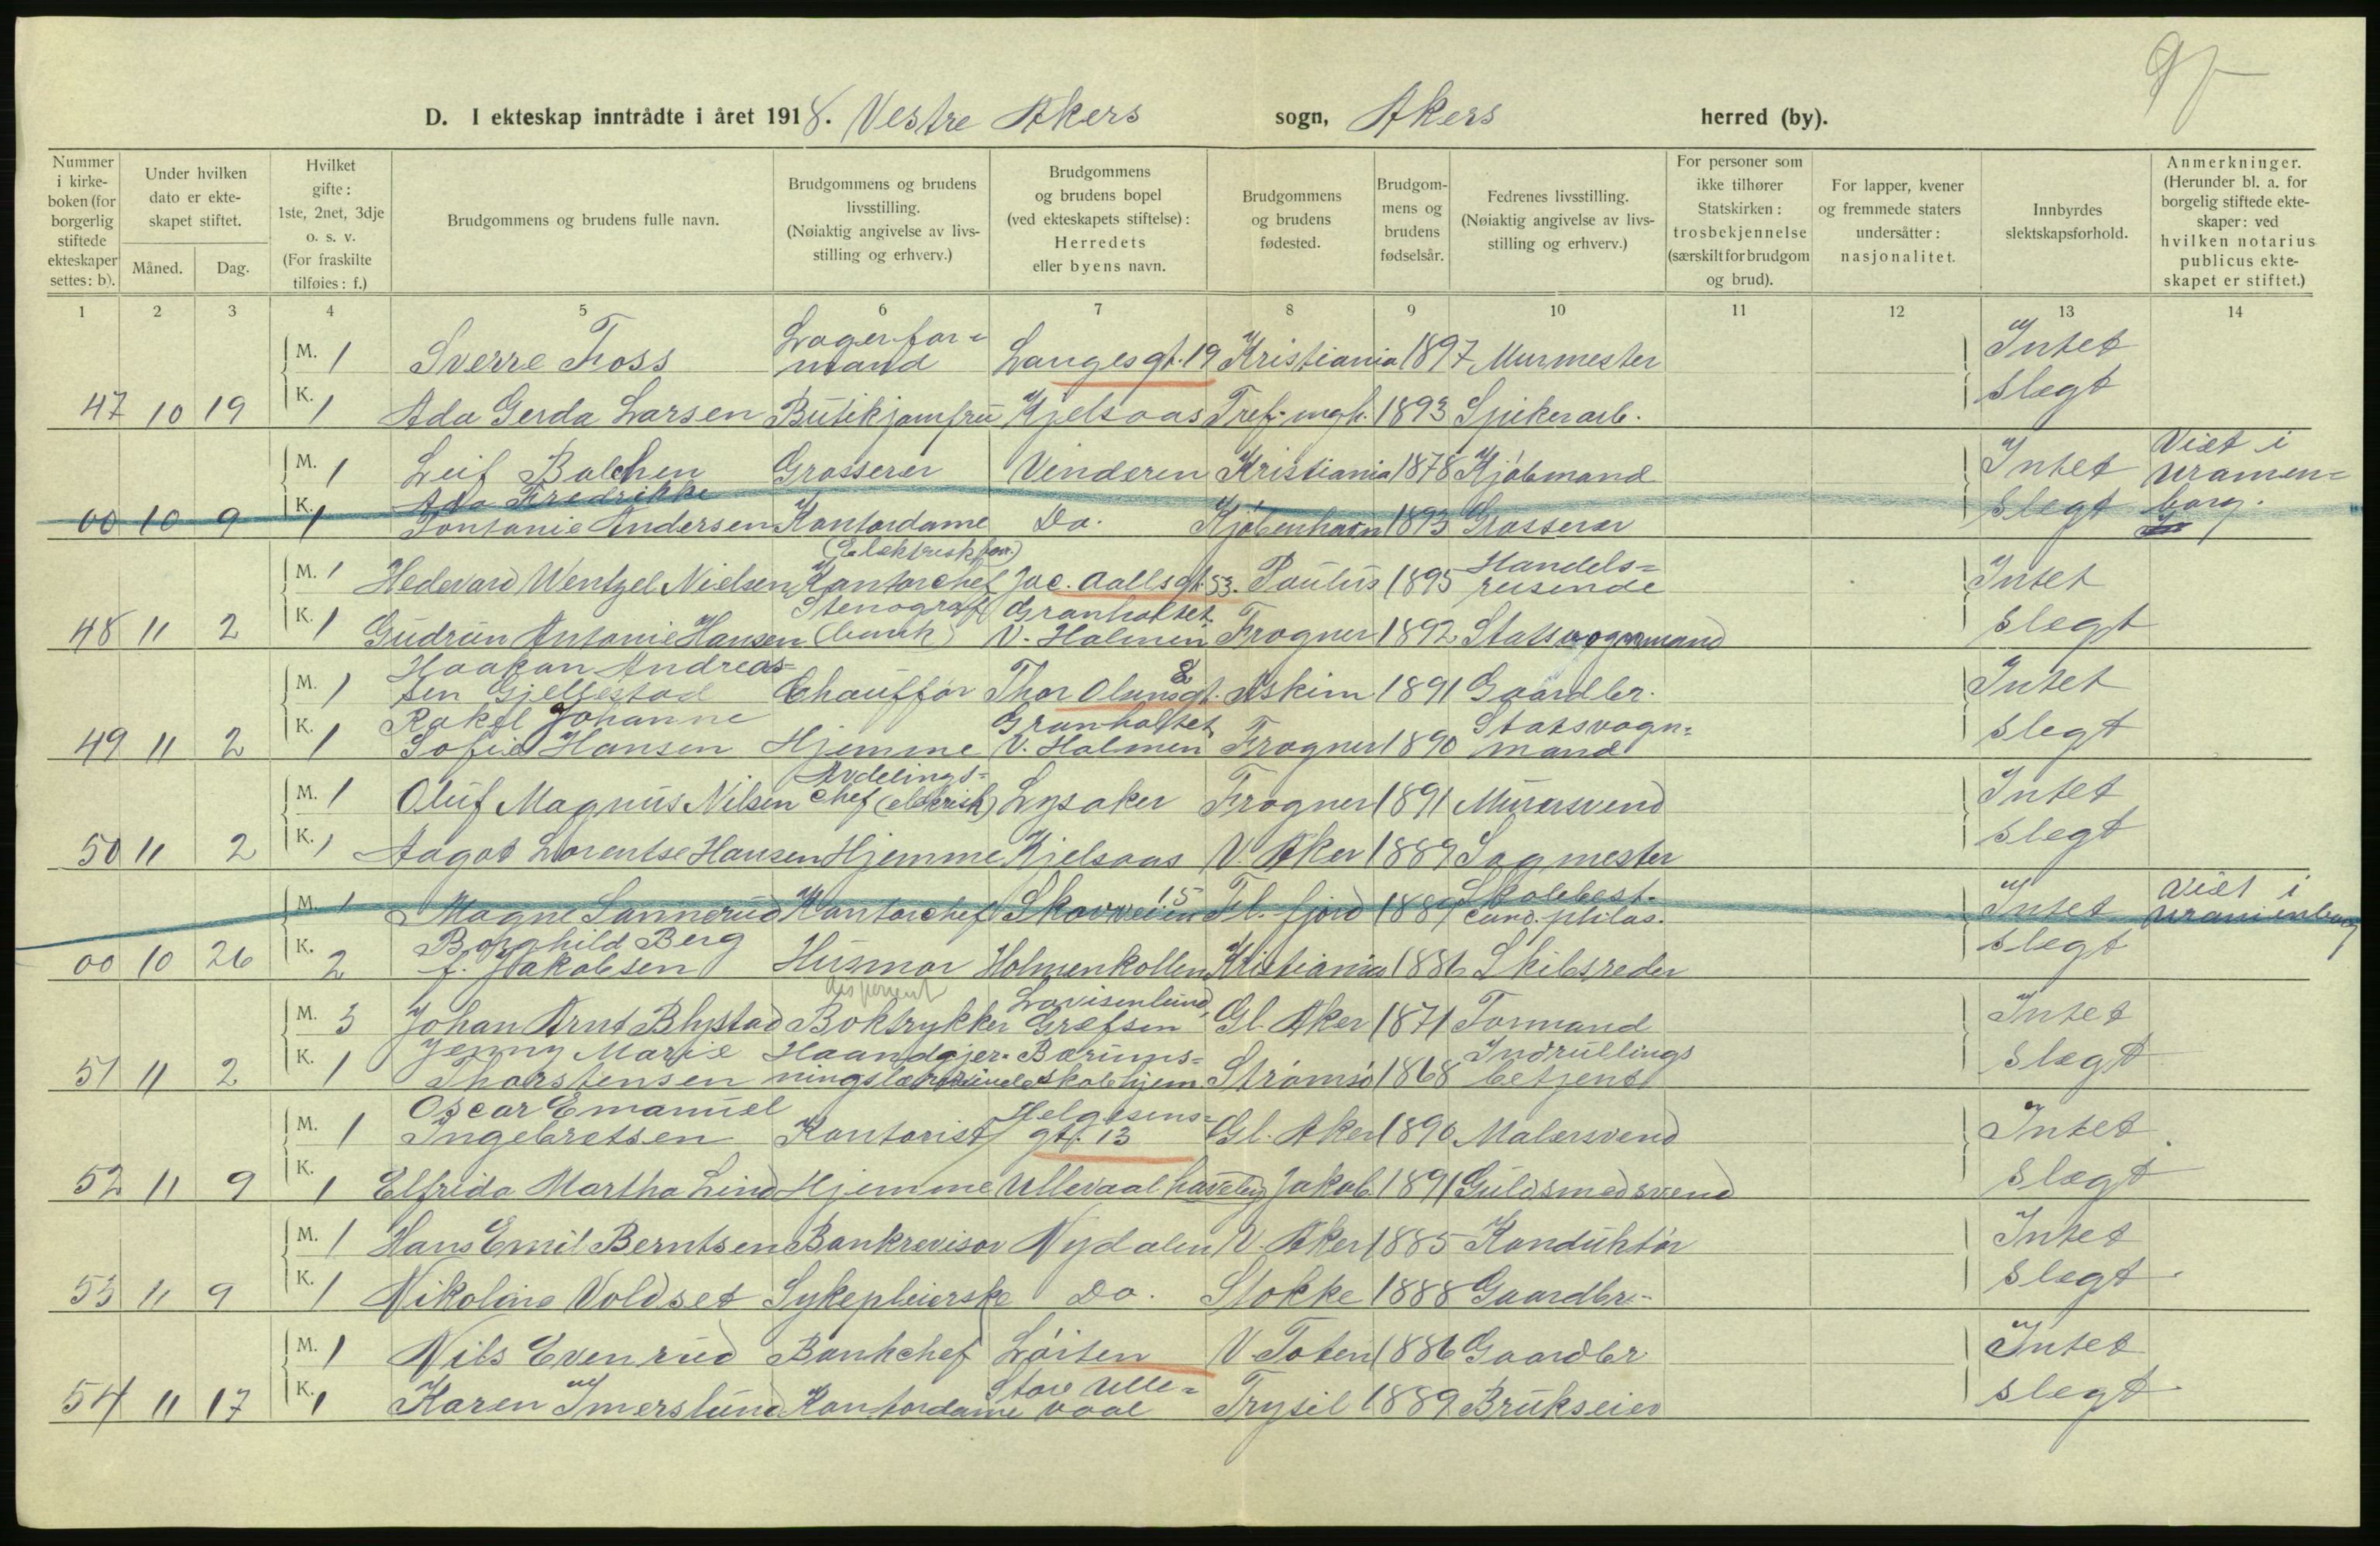 9
D. I ekteskap inntrådte i året 1918. Vestre Akers sogn, Akers herred (by).
Nummer i kirkeboken (for borgerlig stiftede ekteskaper settes: b).
Under hvilken dato er ekteskapet stiftet.
Måned.
Dag.
Hvilket gifte: 1ste, 2net, 3dje o. s. v. (For fraskilte tilføies: f.)
Brudgommens og brudens fulle navn.
Brudgommens og brudens livsstilling. (Nøiaktig angivelse av livsstilling og erhverv.)
Brudgommens og brudens bopel (ved ekteskapets stiftelse): Herredets eller byens navn.
Brudgommens og brudens fødested.
Brudgommens og brudens fødselsår.
Fedrenes livsstilling. (Nøiaktig angivelse av livsstilling og erhverv.)
For personer som ikke tilhører Statskirken: trosbekjennelse (særskilt for brudgom og brud).
For lapper, kvener og fremmede staters undersåtter: nasjonalitet.
Innbyrdes slektskapsforhold.
Anmerkninger. (Herunder bl. a. for borgelig stiftede ekteskaper: ved hvilken notarius publicus ekteskapet er stiftet.)
1 2 3 4 5 6 7 8 9 10 11 12 13 14
M. 1 Sverre Foss Lagerfor=mand Langesgt. 19 Kristiania 1897 Murmester Intet
47 10 19 K. 1 Ada Gerda Larsen Butikjomfru Kjelsaas Tref. mgh. 1893 Spikerarb. slegt
M. 1 Leif Balchen Grosserer Vinderen Kristiania 1878 Kjøbmand Intet Viet i Uranien=
00 10 9 K. 1 Ada Fredrikke Tontanie Andersen Kontordame Do. Kjøbenhavn 1893 Grosserer slegt borg.
M. 1 Hedevard Wentzel Nielsen Kontorchef (Elektrisk forr.) Jac. Aallsgt. 53. Paulus 1895 Handels=reisende Intet
48 11 2 K. 1 Gudrun Antonie Hansen Stenograf (bank) Granholtet V. Holmen Frogner 1892 Statsvognmand slegt
M. 1 Haakon Andreas=sen Gjellestad Chauffør Thor Olsensgt. 8 Askim 1891 Gaardbr. Intet
49 11 2 K. 1 Rakel Johanne Sofie Hansen Hjemme Granholtet V. Holmen Frogner 1890 Statsvogn=mand slegt
M. 1 Oluf Magnus Nilsen Avdelings=chef (elektrisk) Lysaker Frogner 1891 Murersvend Intet
50 11 2 K. 1 Aagot Lorentse Hansen Hjemme Kjelsaas V. Aker 1889 Sagmester slegt
M. 1 Magne Sannerud Kontorchef Skovveien 15 Fl. fjord 1887 Skolebest. cand. philos. Intet Viet i Uranienborg
00 10 26 K. 2 Borghild Berg f. Jakobsen Husmor Holmenkollen Kristiania 1886 Skibsreder slegt
M. 3 Johan Arnt Blystad disponent Boktrykker Lovisenlund, Grefsen Gl. Aker 1871 Formand Intet
51 11 2 K. 1 Jenny Marie Thorstensen Haandgjer=ningslærerinde Bærums=skolehjem Strømsø 1868 Indrullings betjent slegt
M. 1 Oscar Emanuel Ingebretsen Kontorist Helgesens=gt. 13 Gl. Aker 1890 Malersvend Intet
52 11 9 K. 1 Elfrida Martha Lind Hjemme Ullevaal haveby Jakob 1891 Guldsmedsvend slegt
M. 1 Hans Emil Berntsen Bankrevisor Nydalen V. Aker 1885 Konduktør Intet
53 11 9 K. 1 Nikoline Voldset Sykepleierske Do. Stokke 1888 Gaardbr. slegt
M. 1 Nils Evenrud Bankchef Løiten V. Toten 1886 Gaardbr Intet
54 11 17 K. 1 Karen Imerslund Kontordame Store Ulle=vaal Trysil 1889 Brukseier slegt